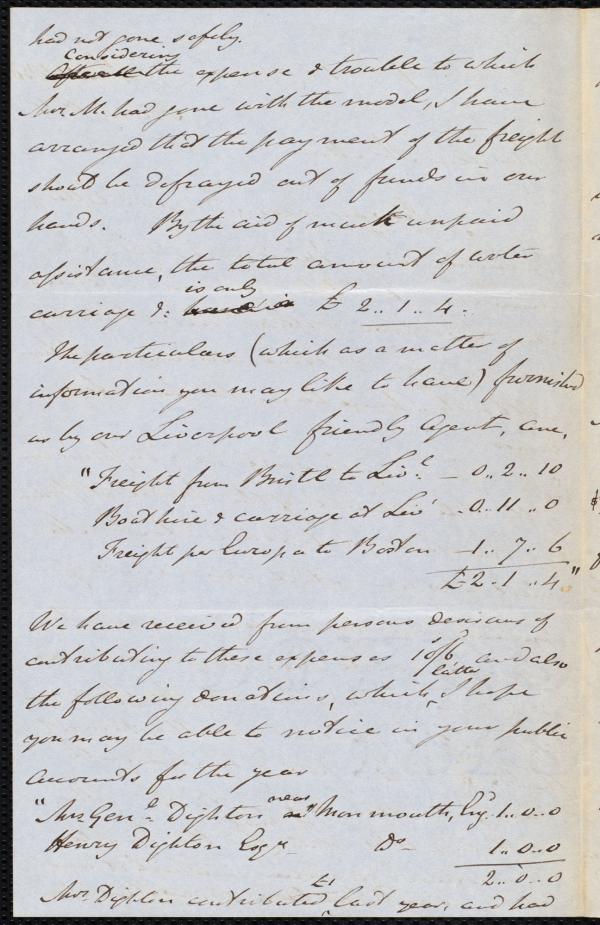 had not gone safely.
Considering
After all the expense & trouble to which
Mrs. M. had gone with the model, I have
arranged that the payment of the freight
shod be defrayed out of funds in our
hands. By the aid of much unpaid
assistance, the total amount of water
is only
carriage &: £ 2..1..4.
The particulars (which as a matter of
information you may like to have) furnished
us by our Liverpool friendly Agent, are,
"Freight from Bristl to Livl. — 0..2..10
Boat hire & carriage at Livl - 0..11..0
Freight per Europa to Boston — 1..7..6
£2.1..4."
We have received from persons desirous of
contributing to these expenses 10/6 and also
latter
the following donations, which, I hope
you may be able to notice in your public
accounts for the year
"Mrs Genl. Dighton near Monmouth, Engd. 1..0..0
Henry Dighton Esqr — Do — 1..0..0
2..0..0
£1
Mrs. Dighton contributed last year, and had